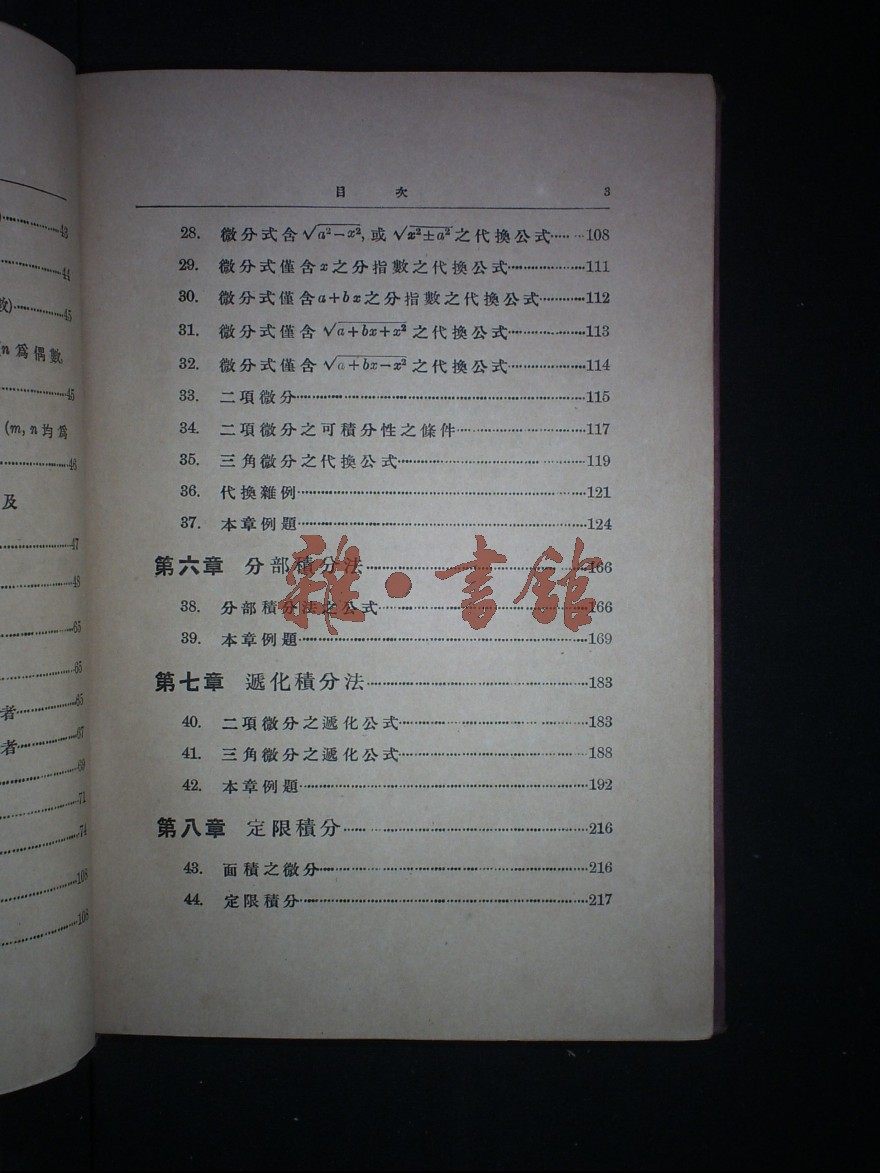 43
44
數)45
n為偶數,
45
(m, n均為
46
及
47
48
65
65
者65
者67
69
71
74
108
108
目 次 3
28. 微分式含√a²−x², 或 √x²±a²之代換公式108
29. 微分式僅含x之分指數之代換公式111
30. 微分式僅含a+bx之分指數之代換公式112
31. 微分式僅含 √a+bx+x² 之代換公式113
32. 微分式僅含 √a+bx−x² 之代換公式114
33. 二項微分115
34. 二項微分之可積分性之條件117
35. 三角微分之代換公式119
36. 代換雜例121
37. 本章例題124
第六章 分部積分法166
38. 分部積分法之公式166
39. 本章例題169
第七章 遞化積分法183
40. 二項微分之遞化公式183
41. 三角微分之遞化公式188
42. 本章例題192
第八章 定限積分216
43. 面積之微分216
44. 定限積分217
雜·書館